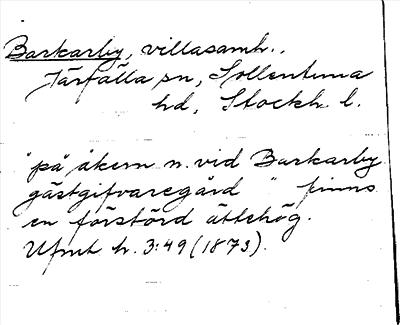 Barkarby, villasamh.,
Järfälla sn, Sollentuna
hd, Stockh. l.
"på åkern n. vid Barkarby
gästgifvaregård" finns
en förstörd ättehög.
Ufmt h. 3:49 (1873).